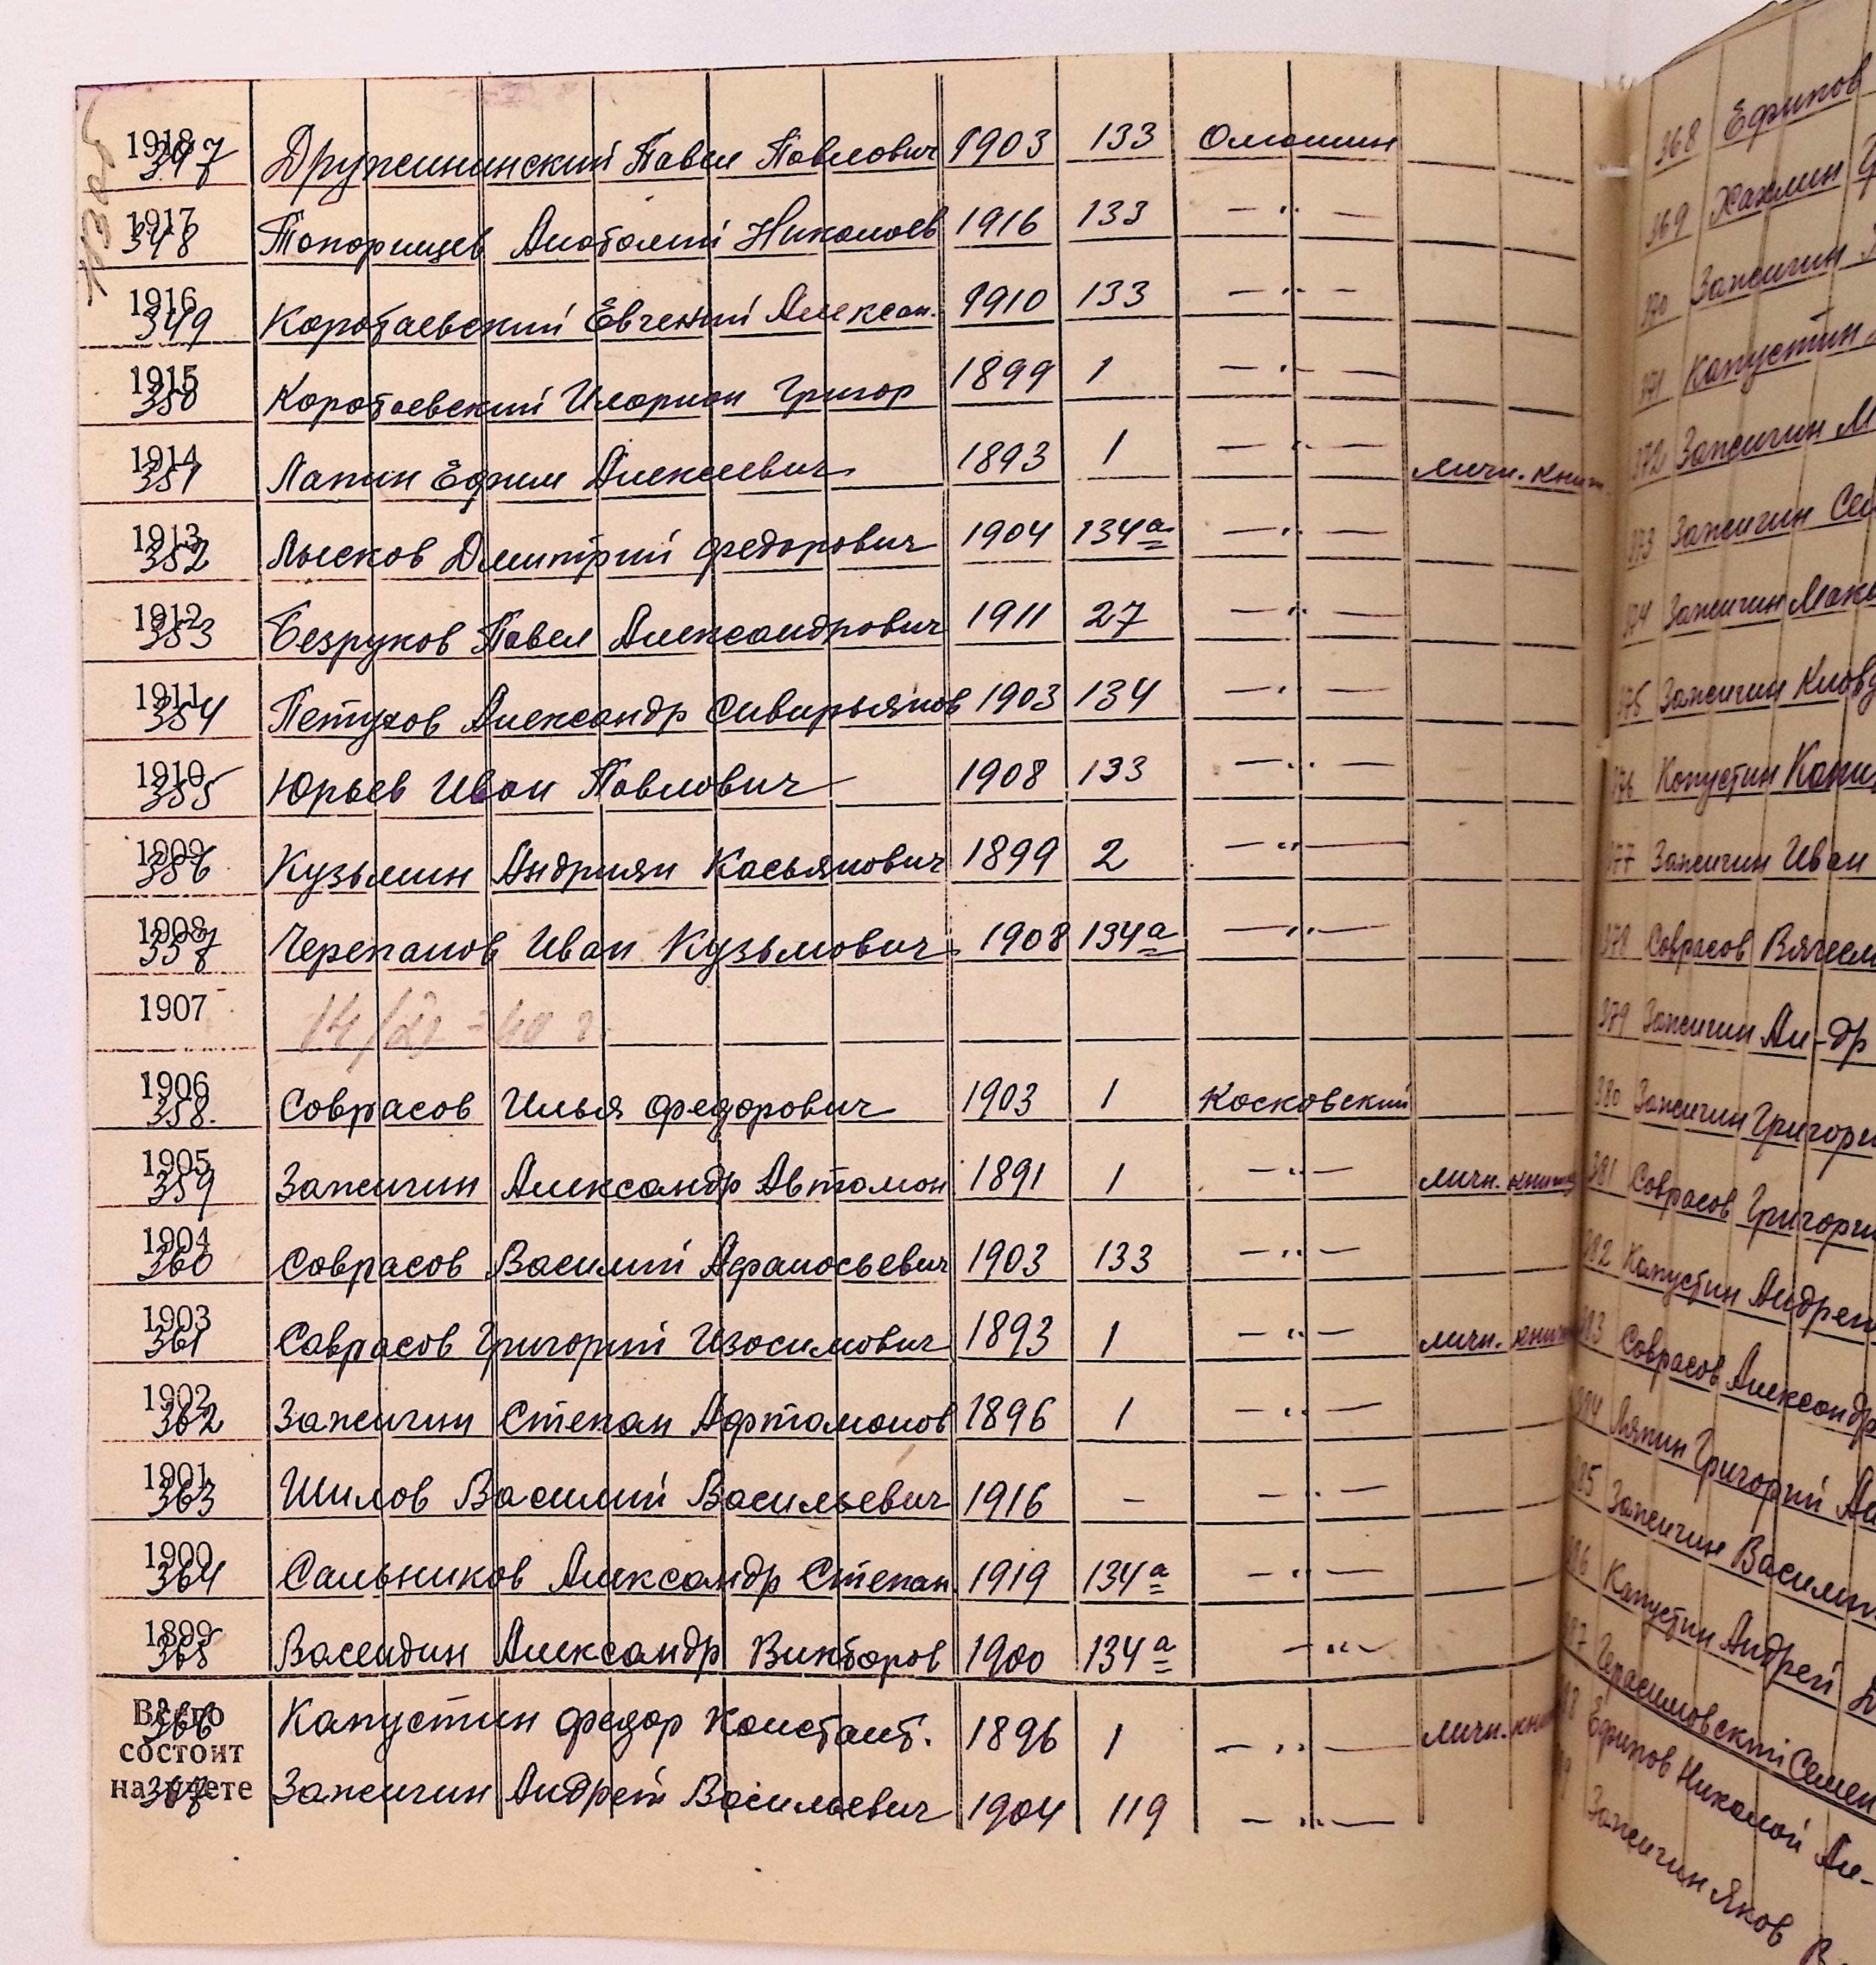 1918 347 Дружининский Павел Павлович 1903 133 Омошин
1917 348 Топорищев Анатолий Николаев 1916 133 — " —
1916 349 Коробаевский Евгений Алексан. 1910 133 — " —
1915 350 Коробаевский Иларион Григор 1899 1 — " —
1914 351 Лапин Ефим Алексеевич 1893 1 — " — личн. книж.
1913 352 Лысков Дмитрий Федорович 1904 134а — " —
1912 353 Безруков Павел Александрович 1911 27 — " —
1911 354 Петухов Александр Сивирьянов 1903 134 — " —
1910 355 Юрьев Иван Павлович 1908 133 — " —
1909 356 Кузьмин Андриян Касьянович 1899 2 — " —
1908 357 Черепанов Иван Кузьмович 1908 134а — " —
1907
1906 358. Соврасов Илья Федорович 1903 1 Косковский
1905 359 Зажигин Александр Автомон 1891 1 — " — личн. книж
1904 360 Соврасов Василий Афанасьевич 1903 133 — " —
1903 361 Саврасов Григорий Изосимович 1893 1 — " — личн. книж
1902 362 Зажигин Степан Афтомонов 1896 1 — " —
1901 363 Шилов Василий Васильевич 1916 – — " —
1900 364 Сальников Александр Степан. 1919 134а — " —
1899 365 Васендин Александр Викторов 1900 134а — " —
Всего 366 Капустин Федор Констант. 1896 1 — " — личн. книж
состоит
на учете 367 Зажигин Андрей Васильевич 1904 119 — " —
368 Ефимов
369 Хахлин
370 Зажигин
371 Капустин
372 Зажигин М
373 Зажигин Сем
374 Зажигин Макс
375 Зажигин Клавд
376 Капустин Капи
377 Зажигин Иван
378 Соврасов Вячесл
379 Зажигин Ал-др
380 Зажигин Григори
381 Соврасов Григори
382 Капустин Андрей
383 Соврасов Александр
384 Ляпин Григорий Ал
385 Зажигин Василий
386 Капустин Андрей
387 Герасимовский Семен
388 Ефимов Николай Ал-
Зажигин Яков В